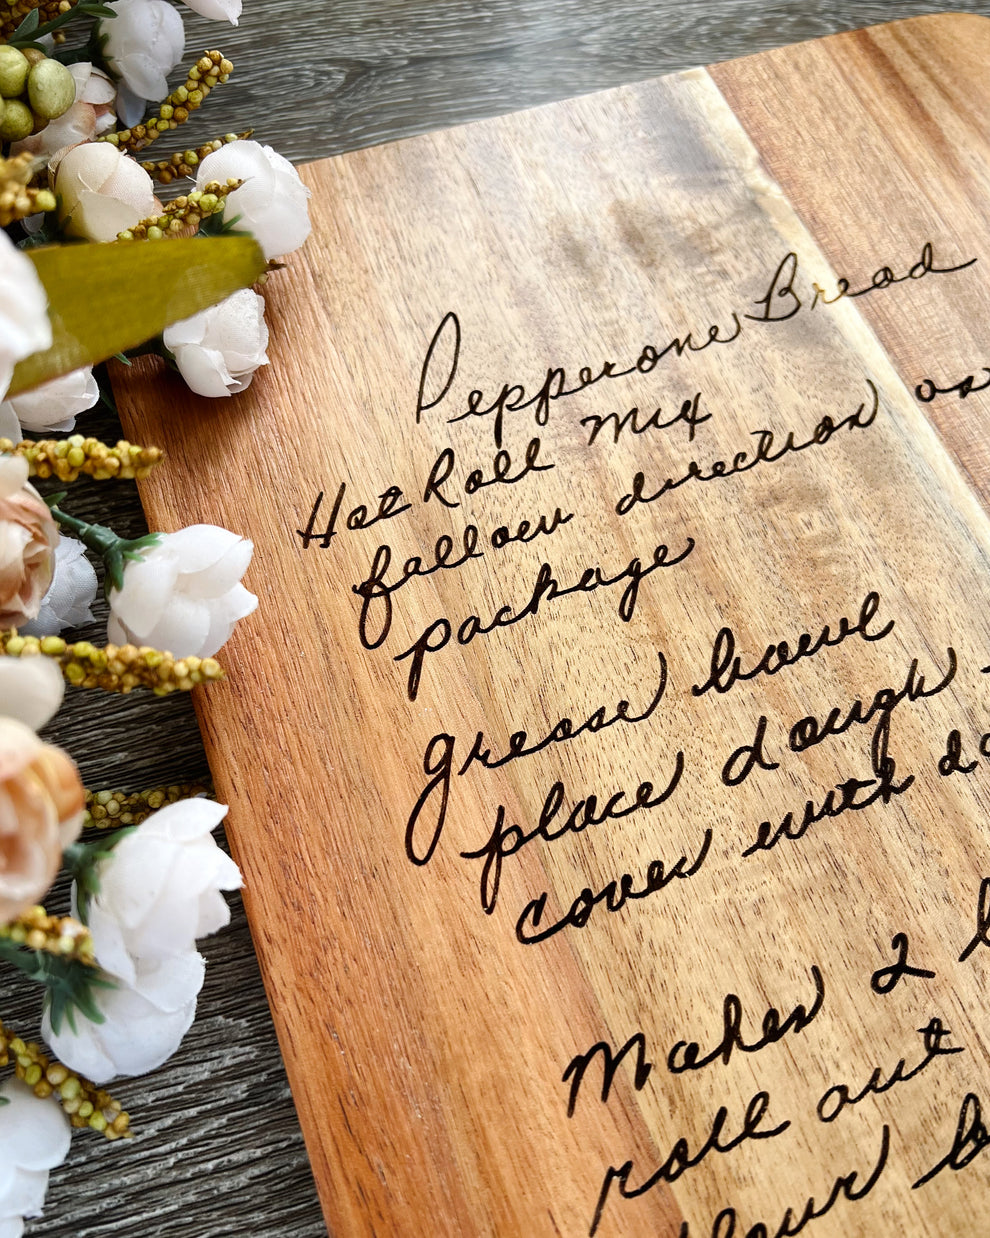 Pepperone Bread
Hot Roll Mix
follow direction on
package
grease bowl
place dough
cover with
Makes 2
roll out
flour